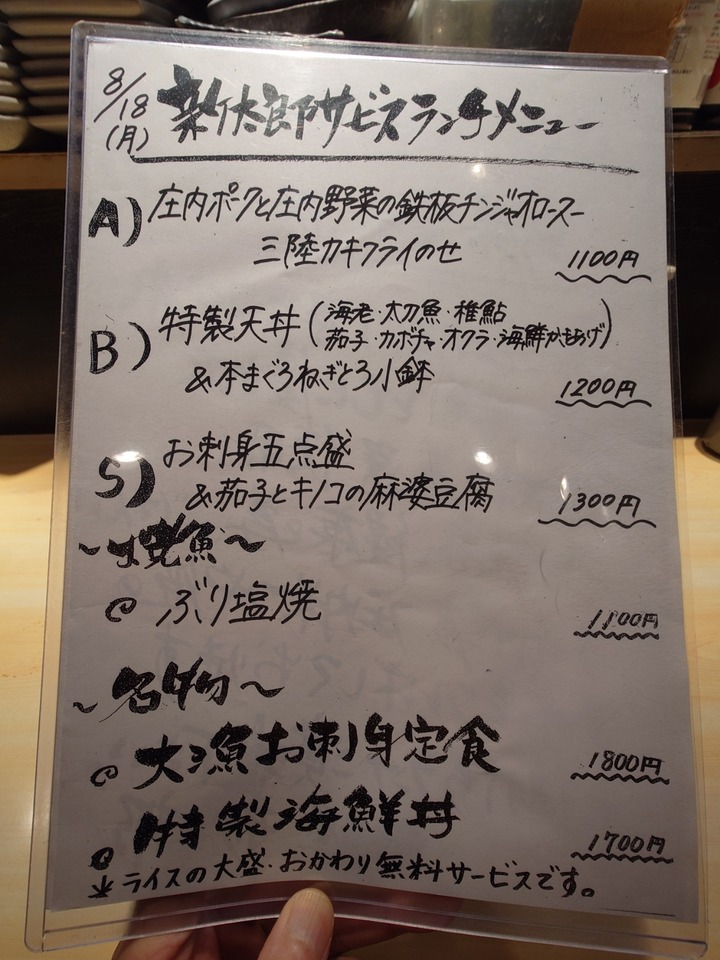 8/18
(月)
新太郎サービスランチメニュー
A) 庄内ポークと庄内野菜の鉄板チンジャオロースー
三陸カキフライのせ
1100円
B) 特製天丼(海老・太刀魚・稚鮎
茄子・カボチャ・オクラ・海鮮かきあげ)
&本まぐろねぎとろ小鉢
1200円
S) お刺身五点盛
&茄子とキノコの麻婆豆腐
1300円
〜焼魚〜
ぶり塩焼
1100円
〜名物〜
大漁お刺身定食
1800円
特製海鮮丼
1700円
*ライスの大盛・おかわり無料サービスです。